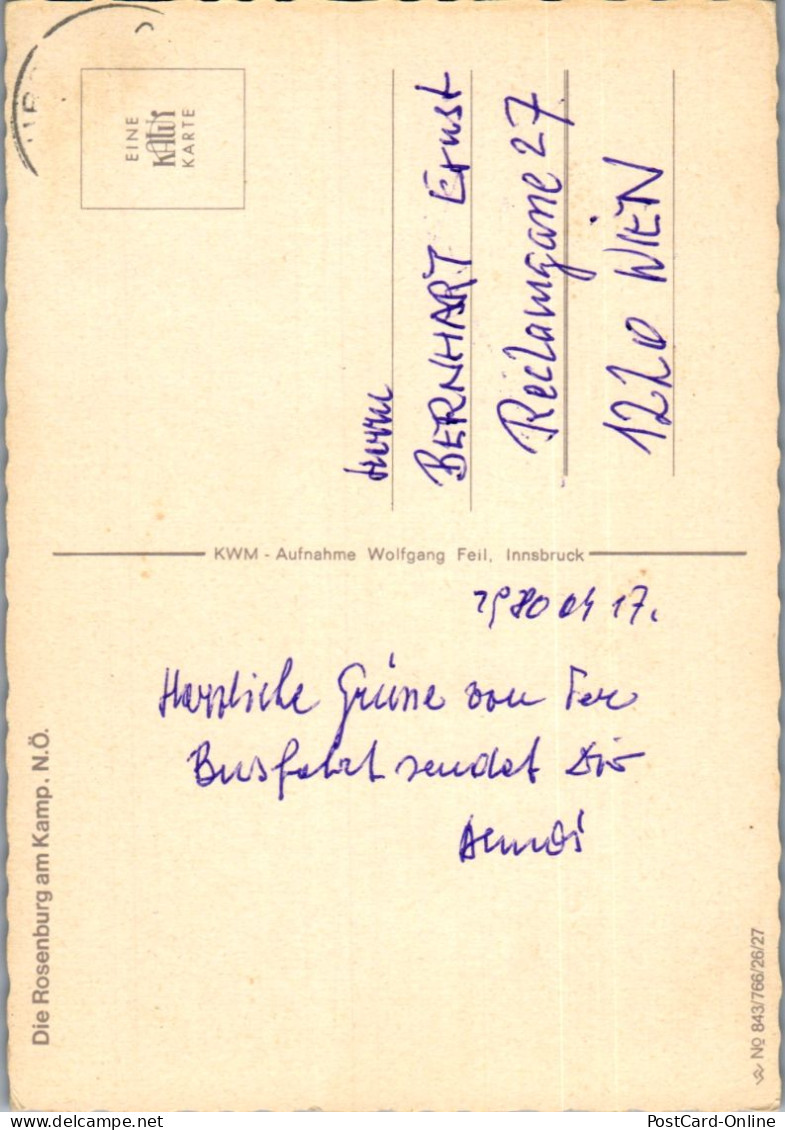 EINE
KARTE
Herrn
BERNHART Ernst
Reclamgasse 27
1220 WIEN
KWM - Aufnahme Wolfgang Feil, Innsbruck
1980 04 17.
Herzliche Grüsse von der
Busfahrt sendet Dir
Die Rosenburg am Kamp, N.Ö.
No 843/766/26/27
PostCard-Online